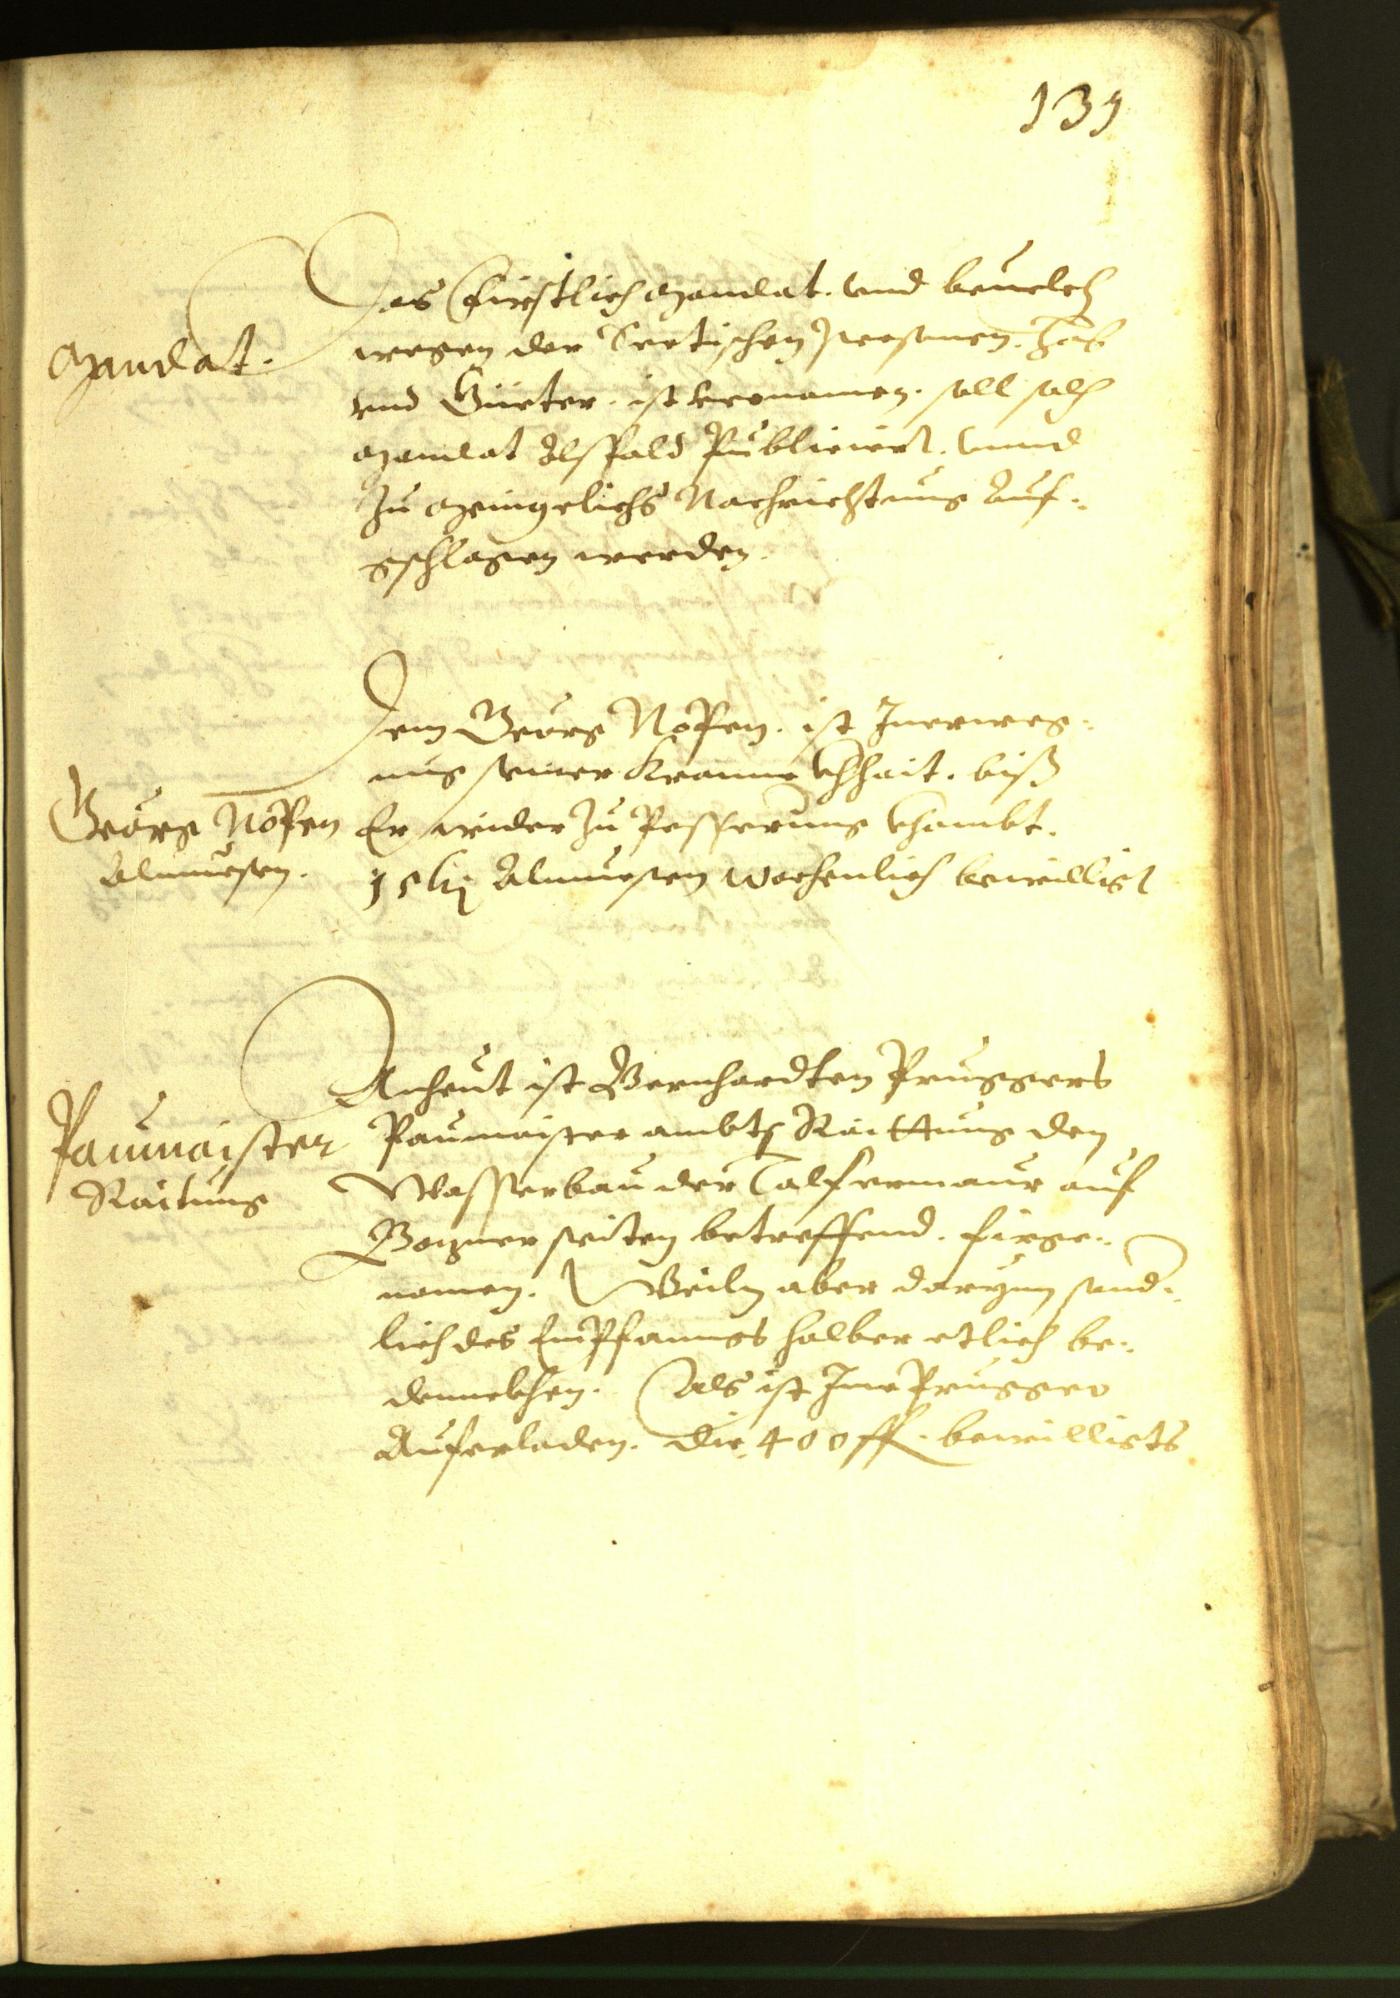 131
Mandat.
Das Fürstlich Mandat. vnd beuelch
wegen der Sectischen Personen. Hab
vnd Güeter. ist vernomen. soll solh
Mandat Alspald Publiciert. vnnd
Zu Menigelichs Nachrichtung Auf-
geschlagen werden.
Georg Nöpen
Almuesen.
Dem Georg Nöpen. ist Inerweg-
ung seiner Krannckhait. biß
Er wider Zu Pesserung khombt.
Almuesen wochenlich bewilligt
Paumaister
Raitung
Anheut ist Bernhardten Pruggers
Paumaister ambts Raittung den
Wasserbau der Talfermaur auf
Bozner seiten betreffend. fürge-
nomen. Weiln aber darynn sond-
lich des Empfanngs halber etlich be-
dennckhen. Als ist Ime Prugger
Auferladen. die 400 fl. bewilligts